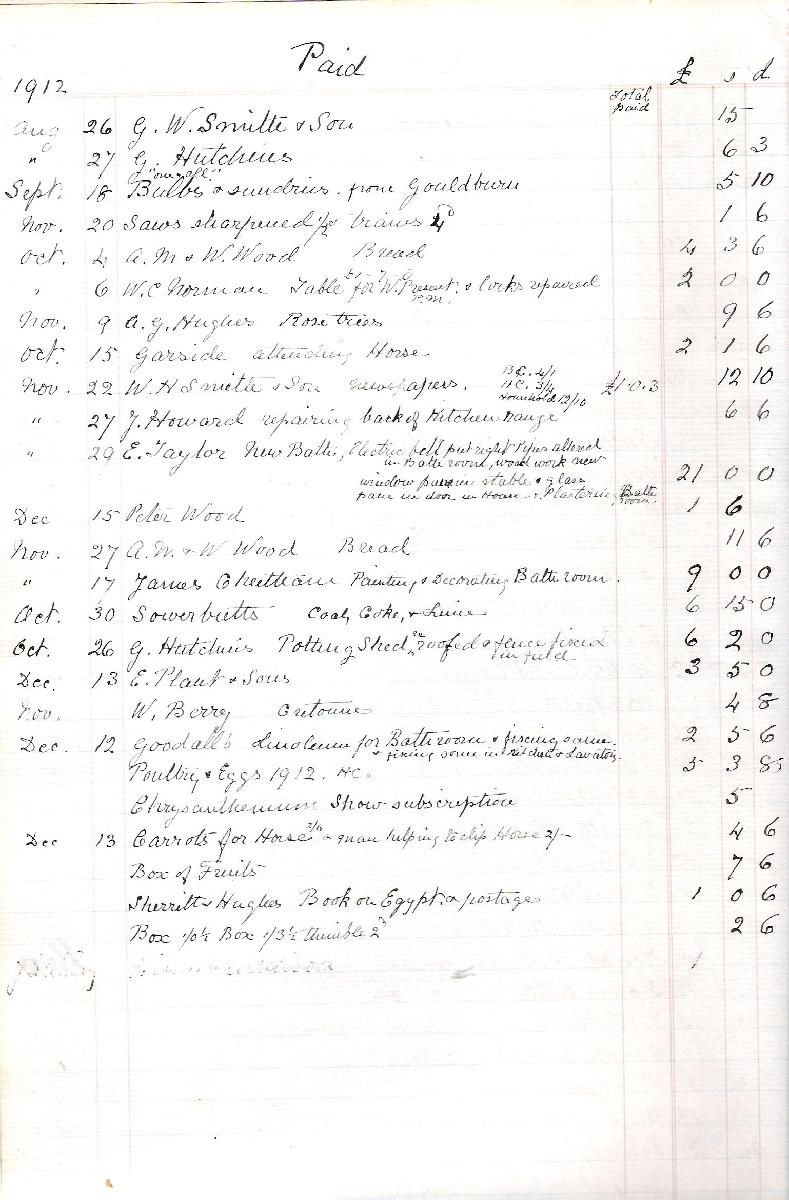 Paid
1912 £ s d
Total Paid
Aug 26 G. W. Smith & Son 15
" 27 G. Hutchins 6 3
Sept. 18 Bulbs & sundries from Gouldburn 5 10
Nov. 20 Saws sharpened 1/2 trains 4d 1 6
Oct. 4 A. M & W. Wood Bread 4 3 6
" 6 W. C Norman Table for W. Present & locks repaired 2 0 0
Nov. 9 A. G. Hughes Rose trees 9 6
Oct. 15 Garside attending Horse 2 1 6
Nov. 22 W. H Smith & Son newspapers. B.C. 4/1 H C. 3/4 Household 12/10 £1.0.3 12 10
" 27 J. Howard repairing back of Kitchen range 6 6
" 29 E. Taylor New Bath, Electric bell put right Pipes altered
in Bath room, wood work new
window pane in stable & glass 21 0 0
pane in door in House & Plastering Bath room.
Dec 15 Peter Wood 1 6
Nov. 27 A. M. & W Wood Bread 11 6
" 17 James Cheetham Painting & Decorating Bathroom. 9 0 0
Oct. 30 Sowerbutts Coal, Coke, & Lime 6 15 0
Oct. 26 G. Hutchins Potting Shed re roofed & fence fixed in field 6 2 0
Dec. 13 E. Plant & Sons 3 5 0
Nov. W. Berry Cretonne 4 8
Dec. 12 Goodall's Linoleum for Bathroom & fixing same 2 5 6
& fixing some in Kitchen & Lavatory.
Poultry & Eggs 1912. H.C. 5 3 8½
Chrysanthemum Show subscription 5
Dec 13 Carrots for Horse 2/6 & man helping to clip Horse 2/- 4 6
Box of Fruits 7 6
Sherritt & Hughes Book on Egypt & postage 1 0 6
Box 1/0½ Box 1/3½ thimble 2d 2 6
1